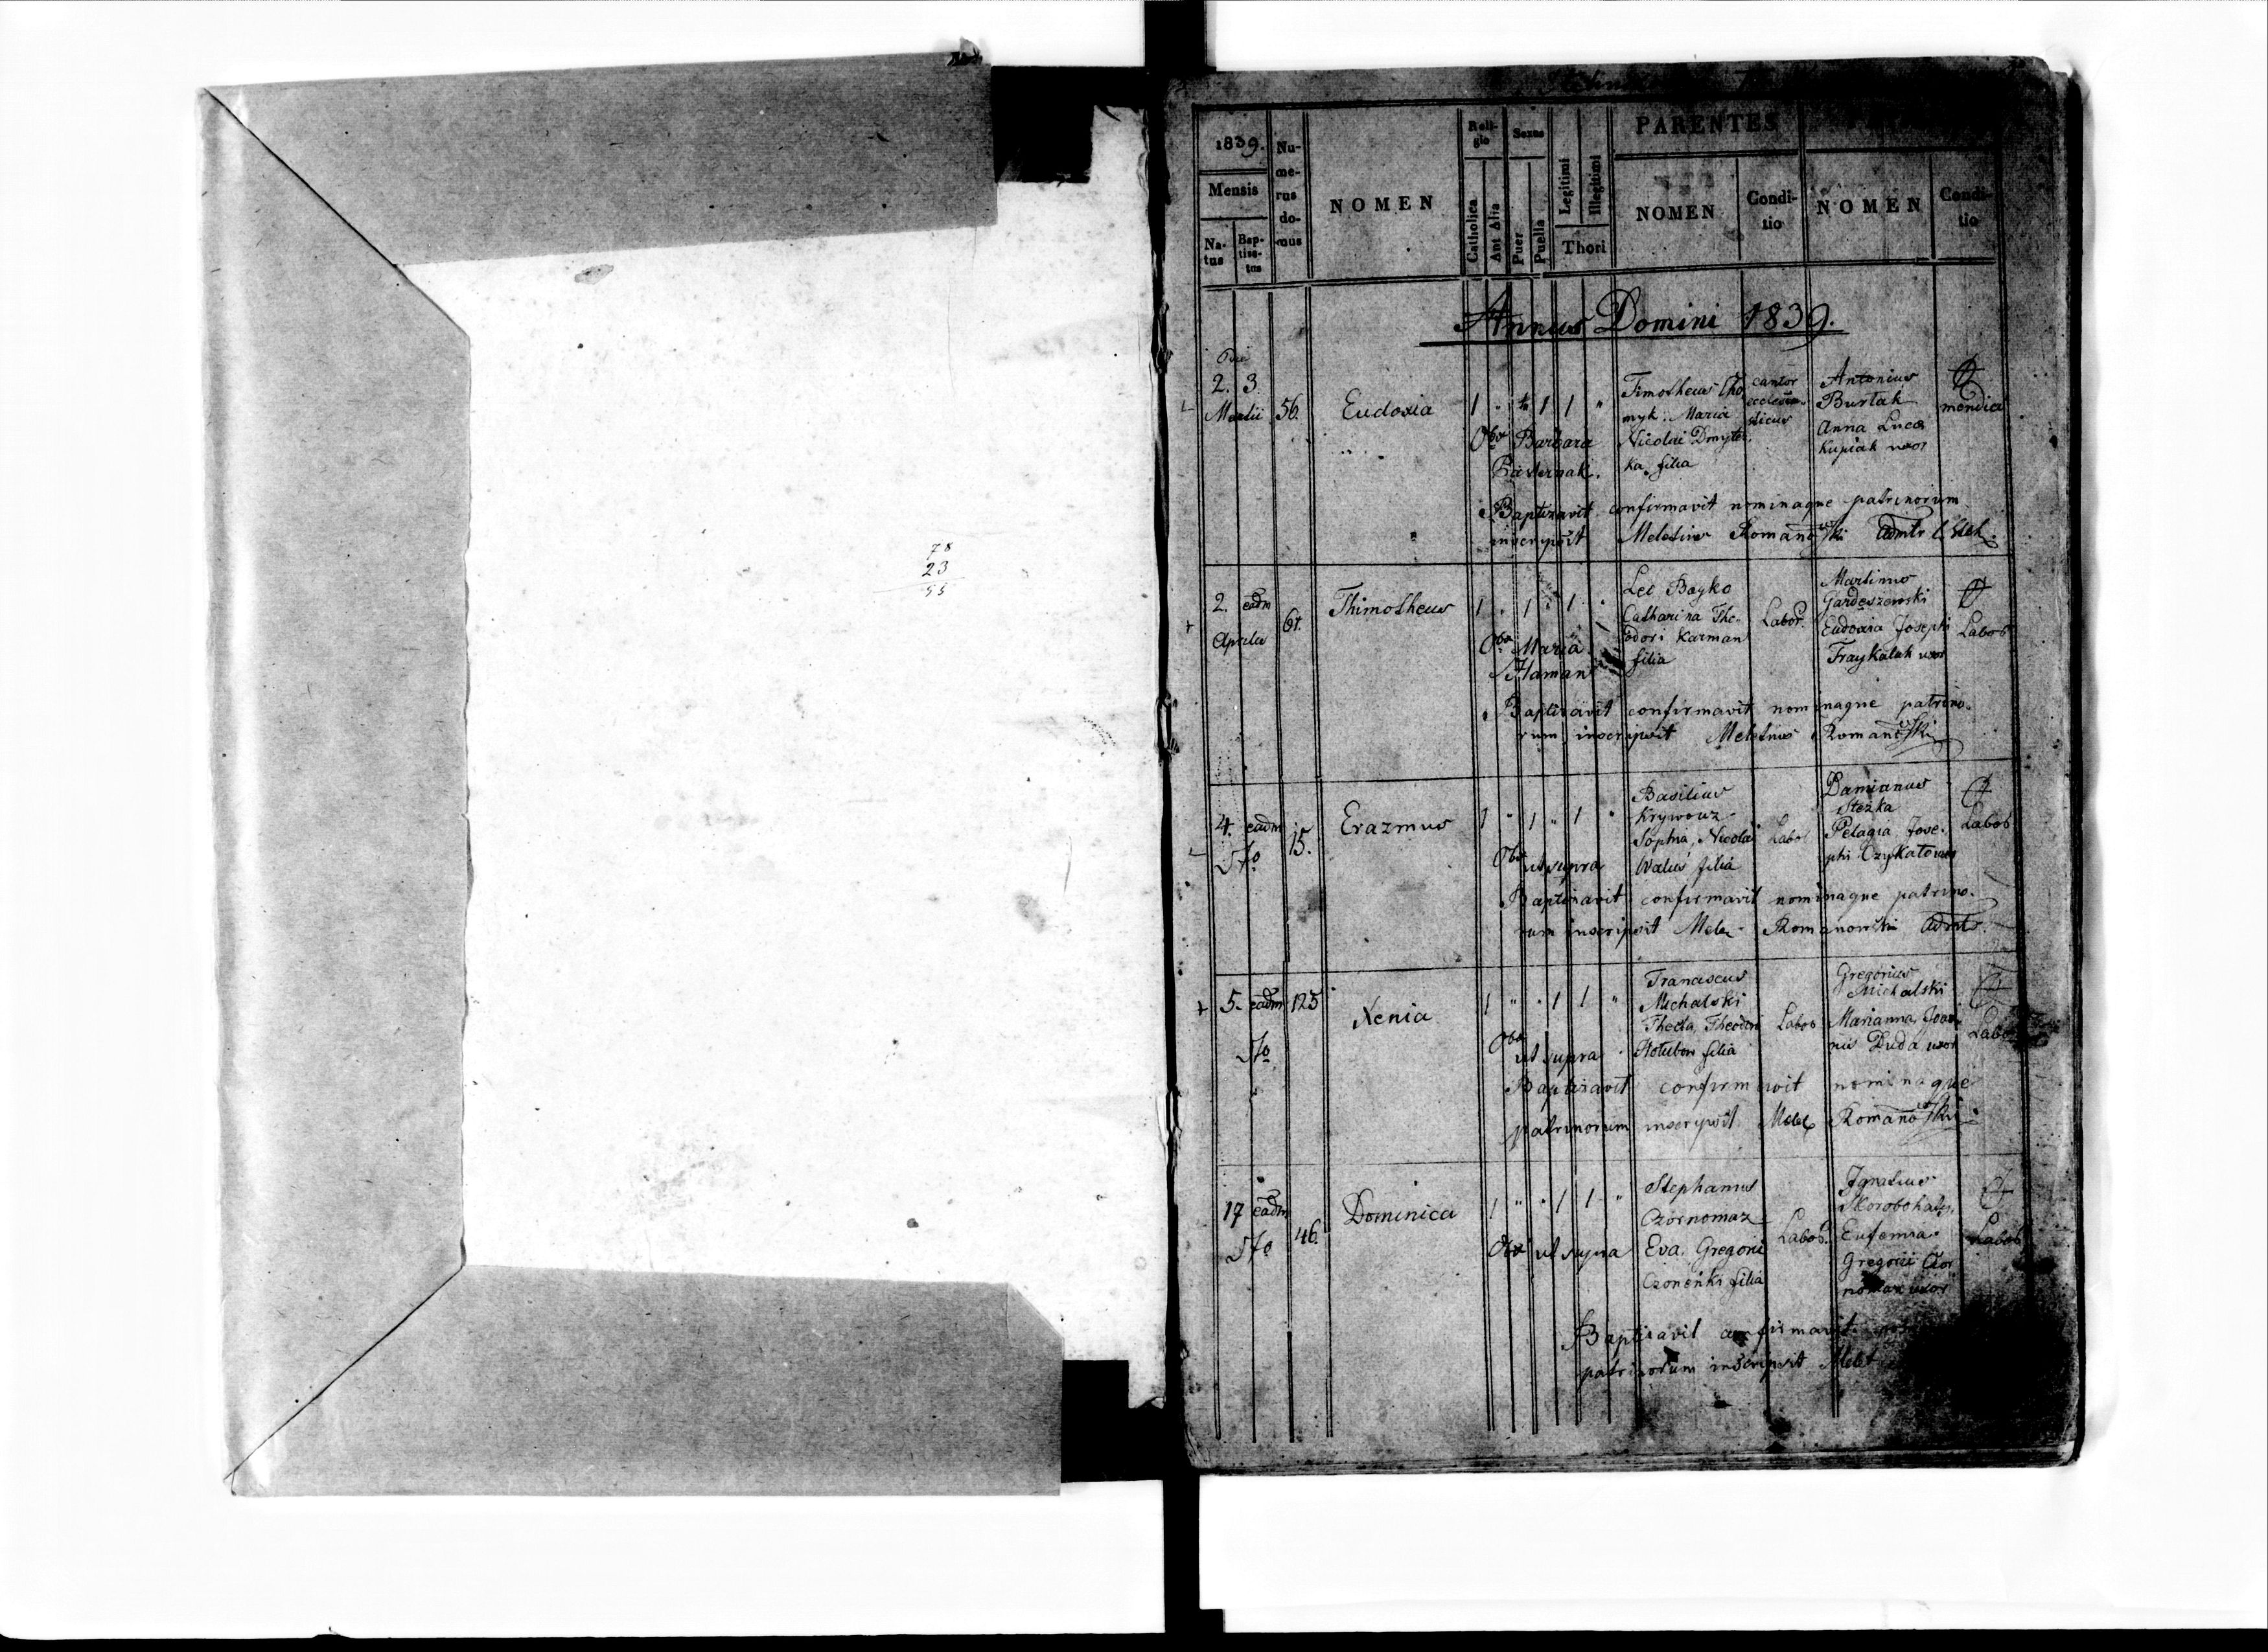 78
23
55
1839.
Mensis
Na-
tus
Bap-
tisa-
tus
Nu-
me-
rus
do-
mus
NOMEN
Reli-
gio
Catholica
Aut Alia
Sexus
Puer
Puella
Legitimi
Illegitimi
Thori
PARENTES
NOMEN
Condi-
tio
NOMEN
Condi-
tio
Annus Domini 1839.
2. 3.
Martii 56.
Eudoxia
1 " 1 1 "
Obst Barbara
Pasternak.
Timotheus Cho
myk. Maria
Nicolai Dmyter.
ka filia
cantor
eccles
sticus
Antonius
Burtak
Anna Luca
Kupiak uxor
mendica
Baptizavit confirmavit nominaque patrinorum
inscripsit Meletius Romanowski Admtr
2. eadm
Aprilis 61.
Thimotheus
1 " 1 " 1 "
Obst Maria
Haman
Leo Bayko
Catharina The-
odori Karman
filia
Labor.
Martinus
Gardeszewski
Eudoxia Josephi
Fraykalak uxor
Labor
Baptisavit confirmavit nominaque patrino-
rum inscripsit Meletius Romanowski
4. eadm 15.
Sto
Erazmus
1 " 1 " 1 "
Obst ut supra
Basilius
Krywouz
Sophia, Nicolai
Walus filia
Labor
Damianus
Stezka
Pelagia Jose-
phi Czykalo uxor
Labor
Baptisavit confirmavit nominaque patrino-
rum inscripsit Mele Romanowski Admtr.
5. eadm 125
Sto
Xenia
1 " " 1 1 "
Obst
ut supra
Franciscus
Michalski
Thecla, Theodori
Holubow filia
Labor
Gregorius
Michalski
Marianna, Joan-
nis Duda uxor
Labor
Baptisavit confirmavit nominaque
patrinorum inscripsit Mele Romanowski
17 eadm 46.
Sto
Dominica
1 " " 1 1 "
Obst ut supra
Stephanus
Czornomaz
Eva, Gregorii
Czonenki filia
Labor.
Ignatius
Skorobohaty.
Eufemia.
Gregorii Czor
nomaz uxor
Labor
Baptisavit confirmavit
patrinorum inscripsit Melet